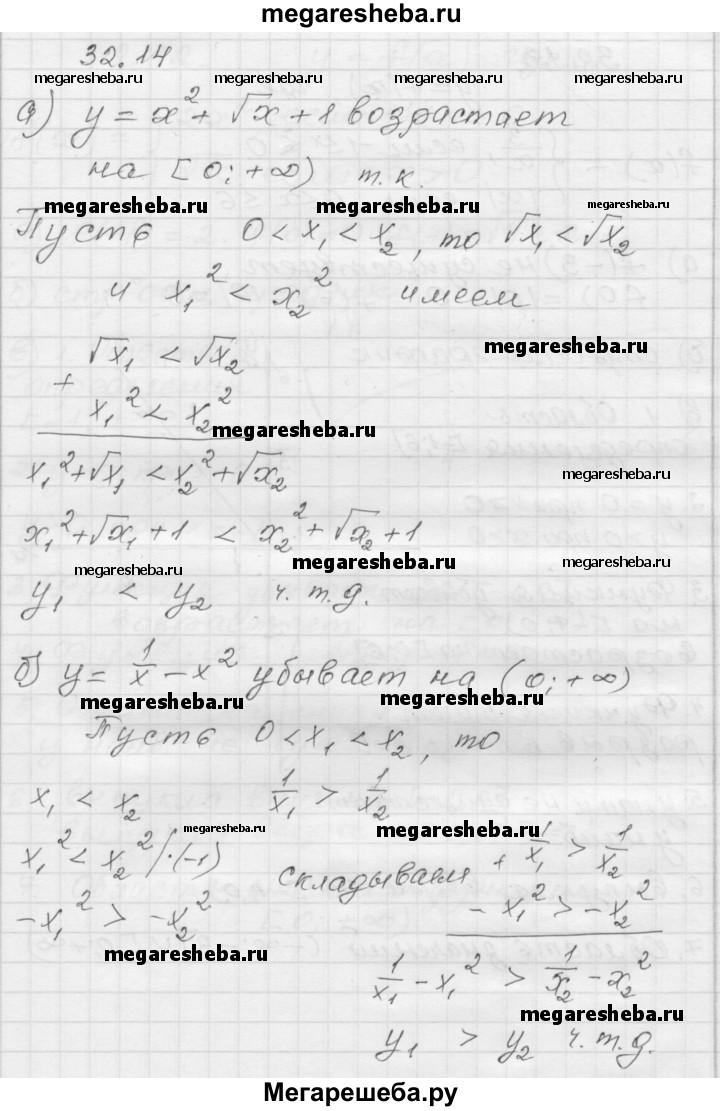 megaresheba.ru
32.14
megaresheba.ru megaresheba.ru megaresheba.ru
а) y = x² + √x + 1 возрастает
на [0; +∞) т.к.
megaresheba.ru megaresheba.ru megaresheba.ru
Пусть 0 < x₁ < x₂, то √x₁ < √x₂
и x₁² < x₂² имеем
megaresheba.ru
√x₁ < √x₂
+
x₁² < x₂²
megaresheba.ru
x₁² + √x₁ < x₂² + √x₂
megaresheba.ru
x₁² + √x₁ + 1 < x₂² + √x₂ + 1
megaresheba.ru megaresheba.ru megaresheba.ru
y₁ < y₂ ч.т.д.
б) y = 1/x - x² убывает на (0; +∞)
megaresheba.ru megaresheba.ru
Пусть 0 < x₁ < x₂, то
x₁ < x₂ 1/x₁ > 1/x₂
megaresheba.ru megaresheba.ru
x₁² < x₂² /·(-1) складываем + 1/x₁ > 1/x₂
-x₁² > -x₂² -x₁² > -x₂²
megaresheba.ru megaresheba.ru
1/x₁ - x₁² > 1/x₂ - x₂²
megaresheba.ru
y₁ > y₂ ч.т.д.
Мегарешеба.ру